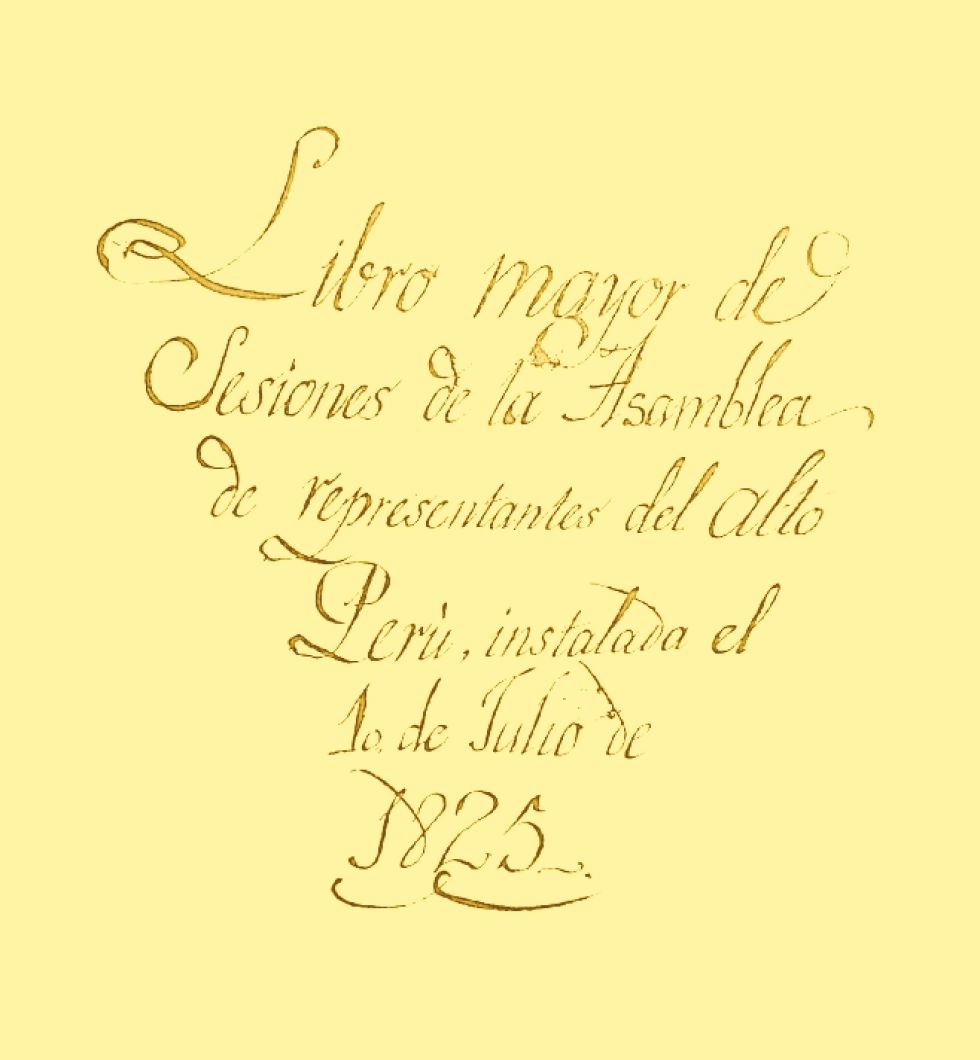 Libro mayor de
Sesiones de la Asamblea
de representantes del alto
Perù, instalada el
1o. de Julio de
1825.